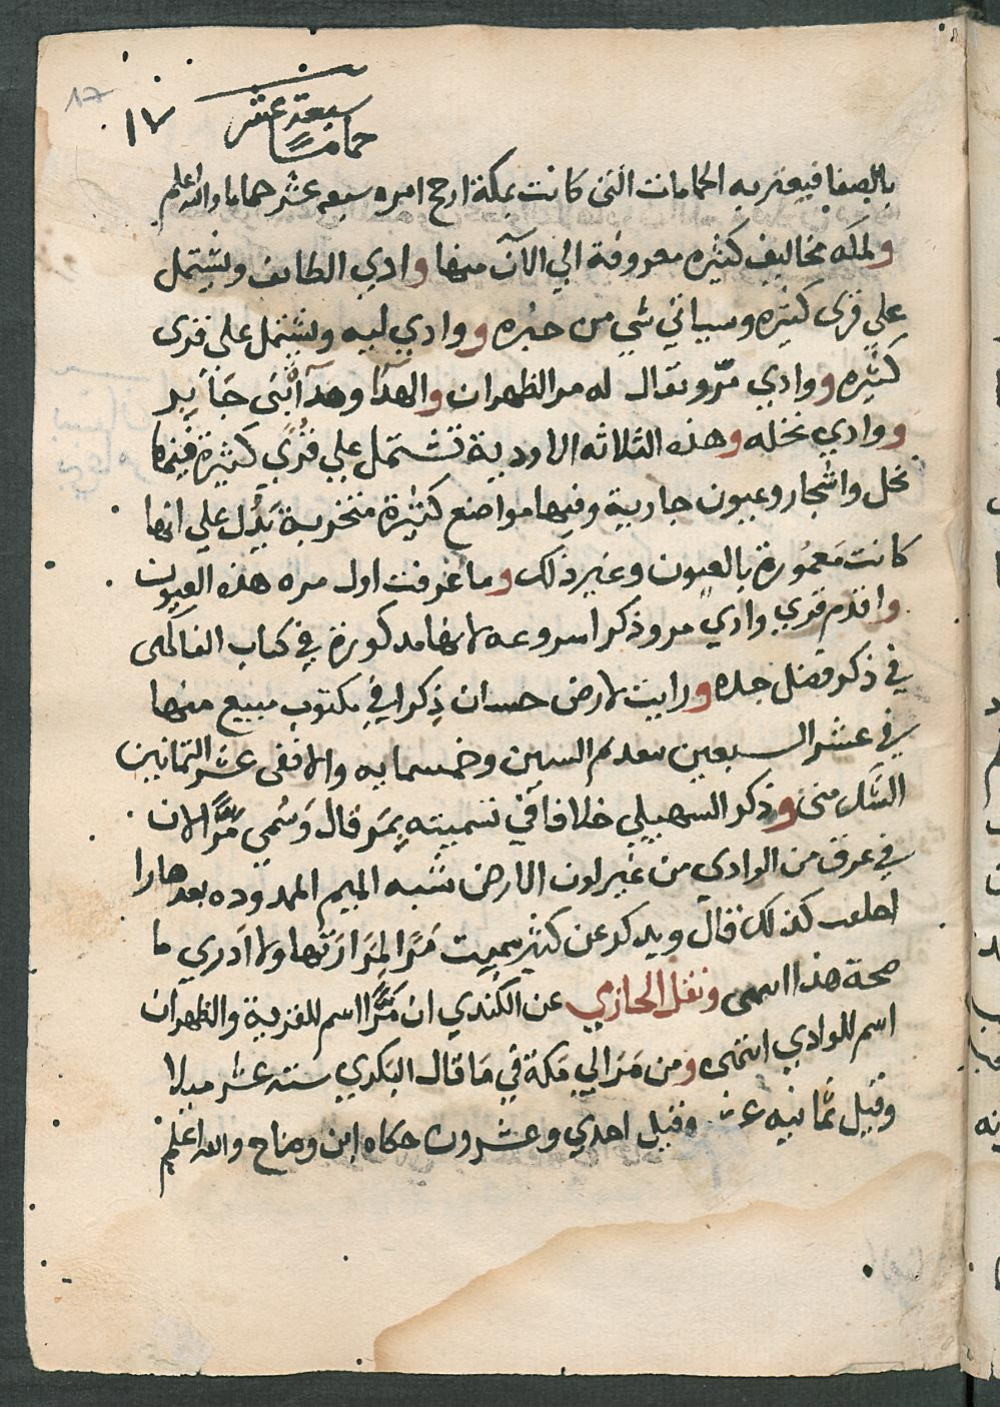 17
١٧
سبعة عشر
حماما
بالصفا فيعتريه الحمامات التي كانت بمكة ارج اميره سبعه عشر حماما والله اعلم
ولمكه مخاليف كثيره معروفة الي الآن منها وادي الطائف ويشتمل
علي قرى كثيره وسياتي شي من خبره ووادي ليه ويشتمل علي قرى
كثيره ووادي مرّ ويقال له مر الظهران والهدا وهدآ ابني جابد
ووادي نخله وهذه الثلاثه الاودية تشتمل علي قُرًي كثيرة فيها
نخل واشجار وعيون جارية وفيها مواضع كثيرة متخربة يَدُل علي انها
كانت مَعمُورة بالعيون وغير ذلك وما عرفت اول مره هذه العيون
واقدم قري وادي مر وذكر اسروعه لانها مذكورة في كتاب الفاكهي
في ذكر فضل جده ورايت لارض حسان ذِكرا في مكتوب مبيع منها
في عشر السبعين بعد الستين وخمسمايه والافقى عشر الثمانين
الشك مني وذكر السهيلي خلافا في تسميته بِمَر قال وَسُمي مَرًّا لان
في عرق من الوادي من غير لون الارض شبه الميم الممدوده بعدها را
كذلك قال ويذكر عن كثير سميت مَرًّا لِمَرَارَتها ولا ادري ما
صحة هذا انتهى ونقل الحازمي عن الكندي ان مَرًّا اسم للقرية والظهران
اسم للوادي انتهى ومن مَر الي مكة في مَا قال البكري ستة عشر ميلا
وقيل ثمانيه عشر وقيل احدي وعشرون حكاه ابن وضاح والله اعلم